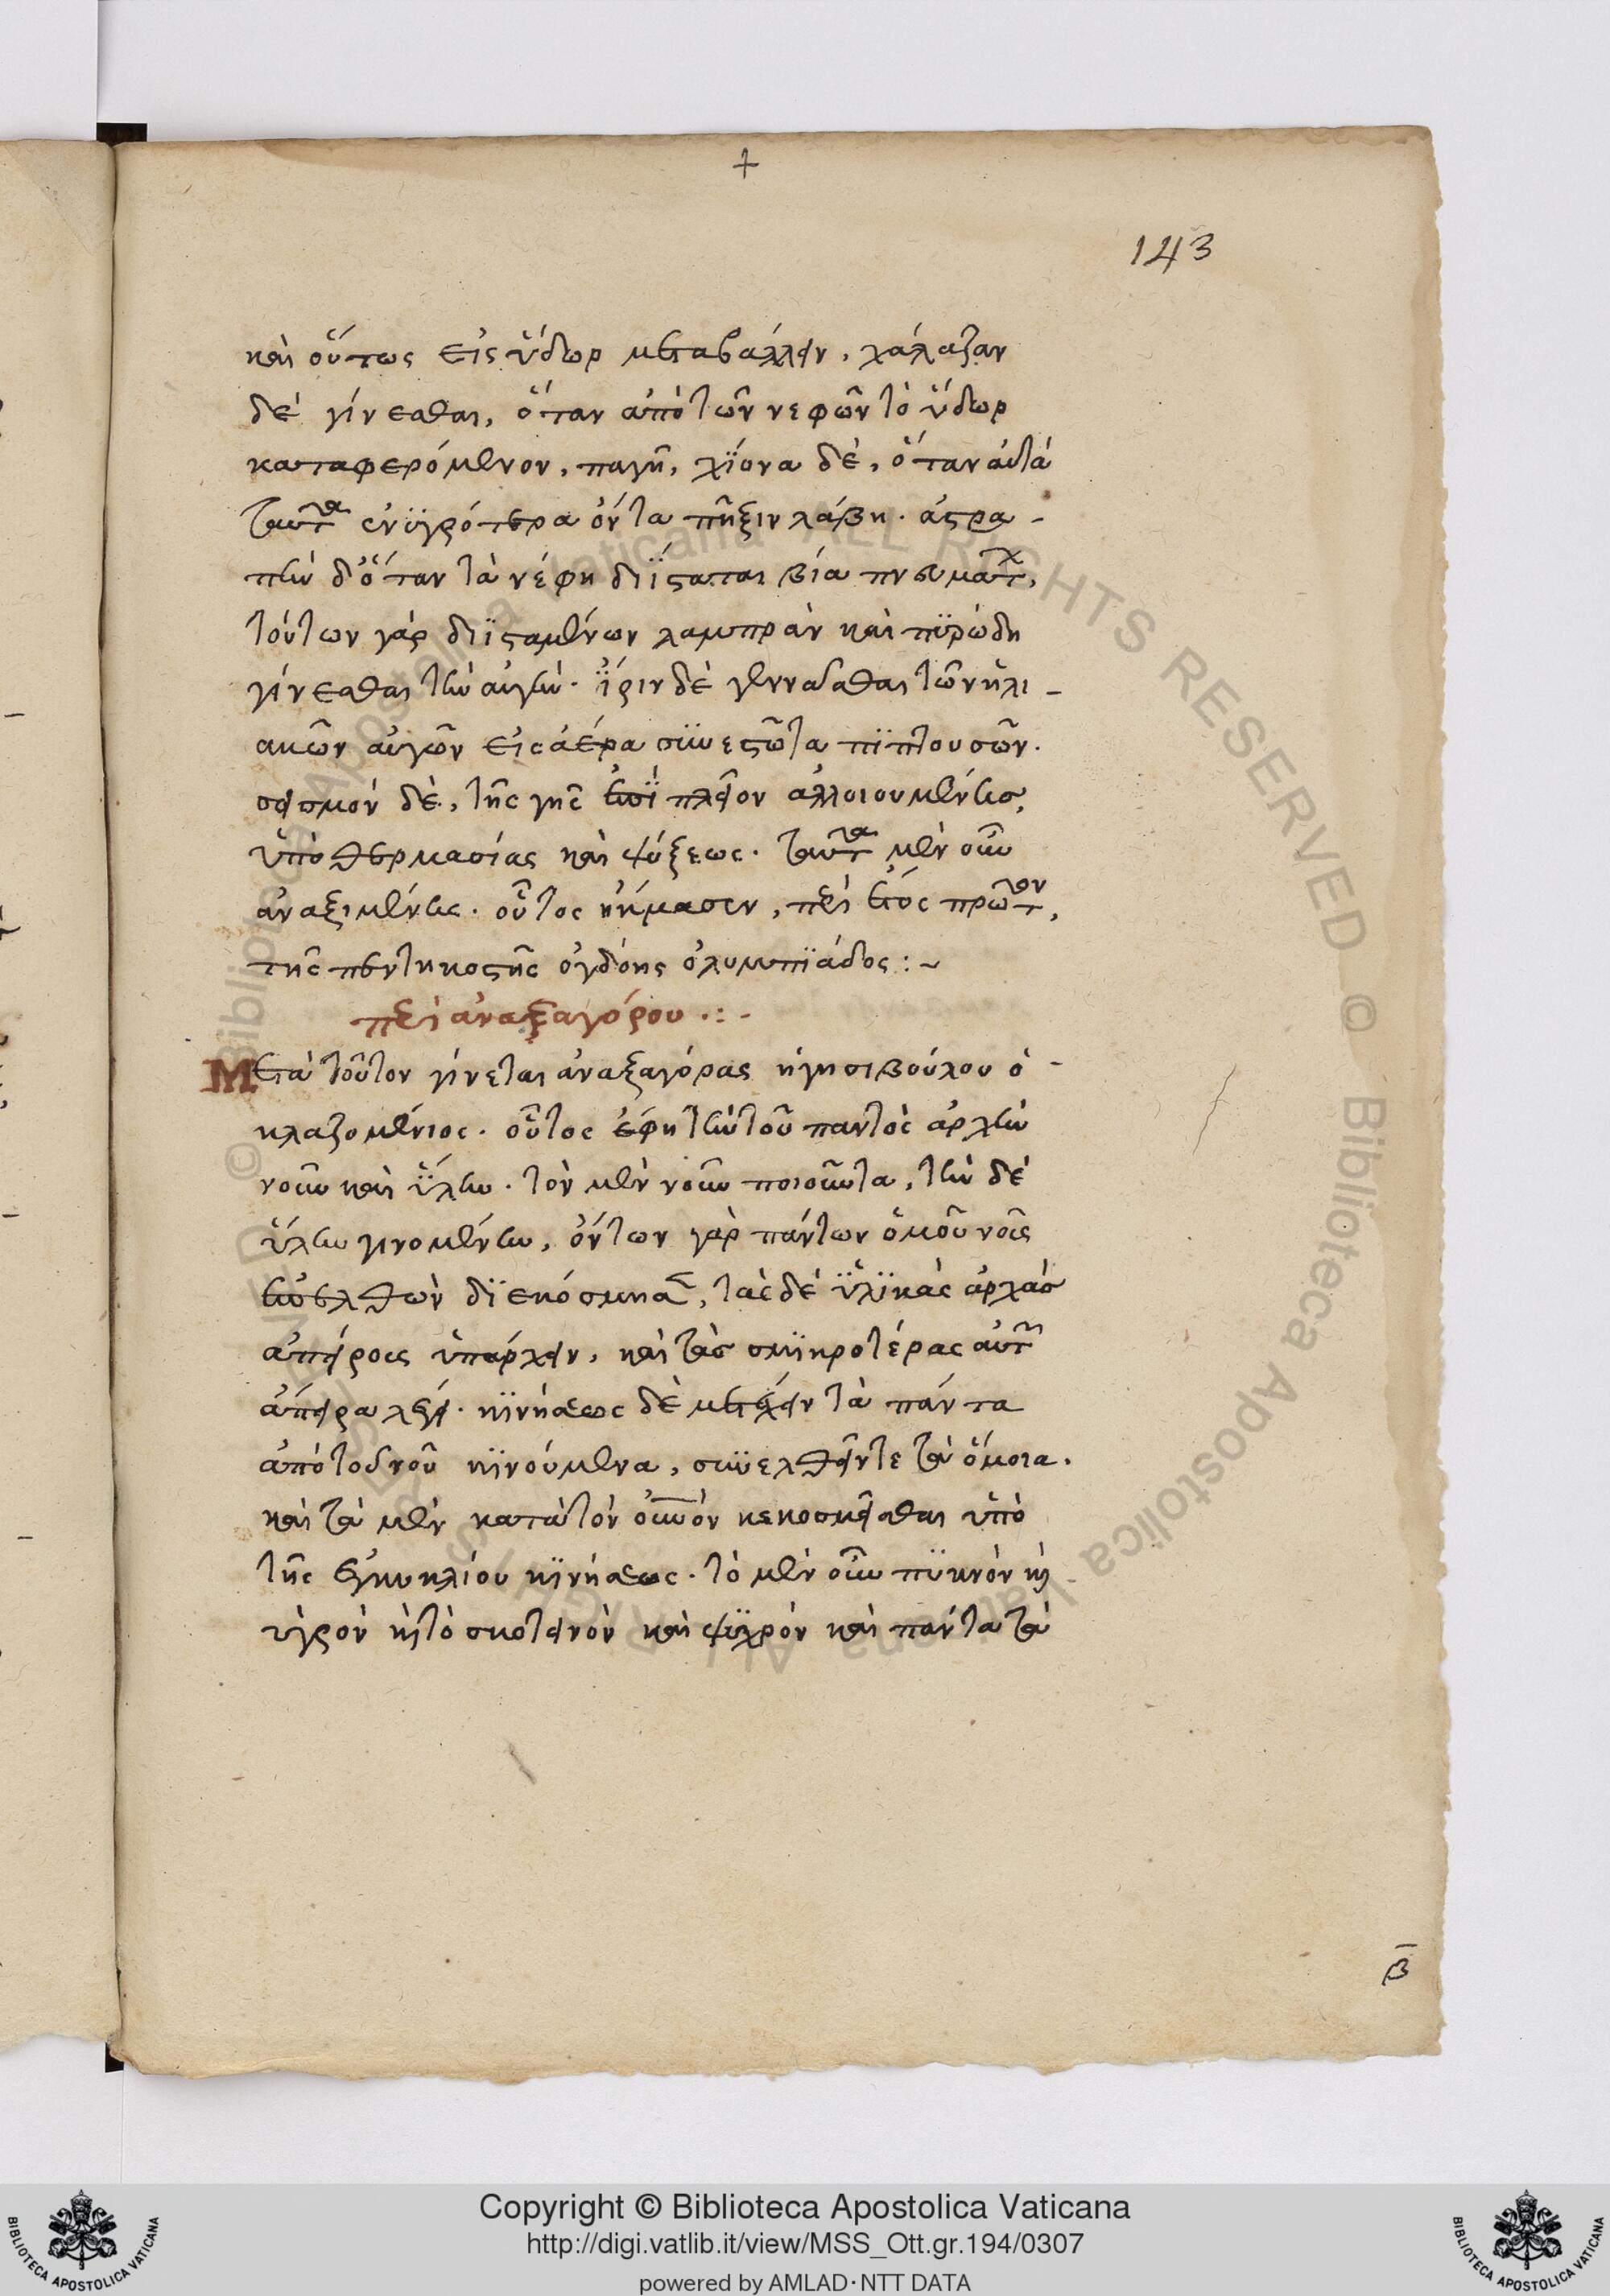 +
143
καὶ οὕτως εἰς ὕδωρ μεταβάλλειν, χάλαζαν
δὲ γίνεσθαι, ὅταν ἀπὸ τῶν νεφῶν τὸ ὕδωρ
καταφερόμενον, παγῆ, χϊόνα δὲ, ὅταν αὐτὰ
ταῦτα ἐνϋγρότερα ὄντα πῆξιν λάβη. ἀστρα-
πὴν δ' ὅταν τὰ νέφη διΐσταται βία πνευμάτων,
τούτων γὰρ διϊσταμένων λαμπρὰν καὶ πϋρώδη
γίνεσθαι τὴν αὐγήν. ἴ̈ριν δὲ γεννᾶσθαι τῶν ἡλι-
ακῶν αὐγῶν εἰς ἀέρα συνεστῶτα πϊπτουσῶν.
σεισμὸν δὲ, τῆς γῆς ἐπῒ πλεῖον ἀλλοιουμένης,
ὑπὸ θερμασίας καὶ ψύξεως. ταῦτα μὲν οὖν
ἀναξιμένης. οὗτος ἤκμασεν, περὶ ἔτος πρῶτον,
τῆς πεντηκοστῆς ὀγδόης ὀλυμπϊάδος :~
περὶ ἀναξαγόρου .:-
Μετὰ τοῦτον γίνεται ἀναξαγόρας ἡγησιβούλου ὁ -
κλαζομένιος. οὗτος ἔφη τὴν τοῦ παντὸς ἀρχὴν
νοῦν καὶ ὕλην. τὸν μὲν νοῦν ποιοῦντα, τὴν δὲ
ὕλην γινομένην, ὄντων γὰρ πάντων ὁμοῦ νοῦς
ἐπελθὼν δϊεκόσμησεν, τὰς δὲ ὑλϊκὰς ἀρχὰς
ἀπείρους ὑπάρχειν, καὶ τὰς σμϊκροτέρας αὐτῶν
ἄπειρα λέγει. κϊνήσεως δὲ μετέχειν τὰ πάντα
ἀπὸ τοῦ νοῦ κϊνούμενα, συνελθεῖν τε τὰ ὅμοια.
καὶ τὰ μὲν κατὰ τὸν οὐνὸν κεκοσμεῖσθαι ὑπὸ
τῆς ἐγκυκλίου κϊνήσεως. τὸ μὲν οὖν πϋκνὸν καὶ
ὑγρὸν καὶ τὸ σκοτεινὸν καὶ ψϋχρὸν καὶ πάντα τὰ
β̅
Copyright © Biblioteca Apostolica Vaticana
http://digi.vatlib.it/view/MSS_Ott.gr.194/0307
powered by AMLAD·NTT DATA
BIBLIOTECA APOSTOLICA VATICANA
BIBLIOTECA APOSTOLICA VATICANA
© Biblioteca Apostolica Vaticana ALL RIGHTS RESERVED © Biblioteca Apostolica Vaticana ALL RIGHTS RESERVED